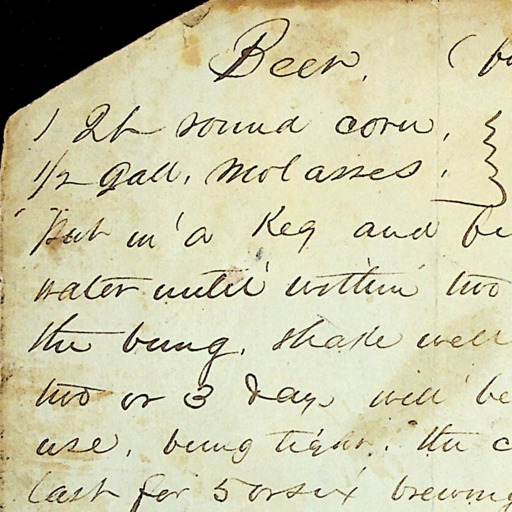 Beer. (
1 Qt sound corn,
1/2 Gall. Molasses.
Put in a Keg and
water until within two
the bung. shake well
two or 3 days will be
use. bung tight. the
last for 5 or six brewing